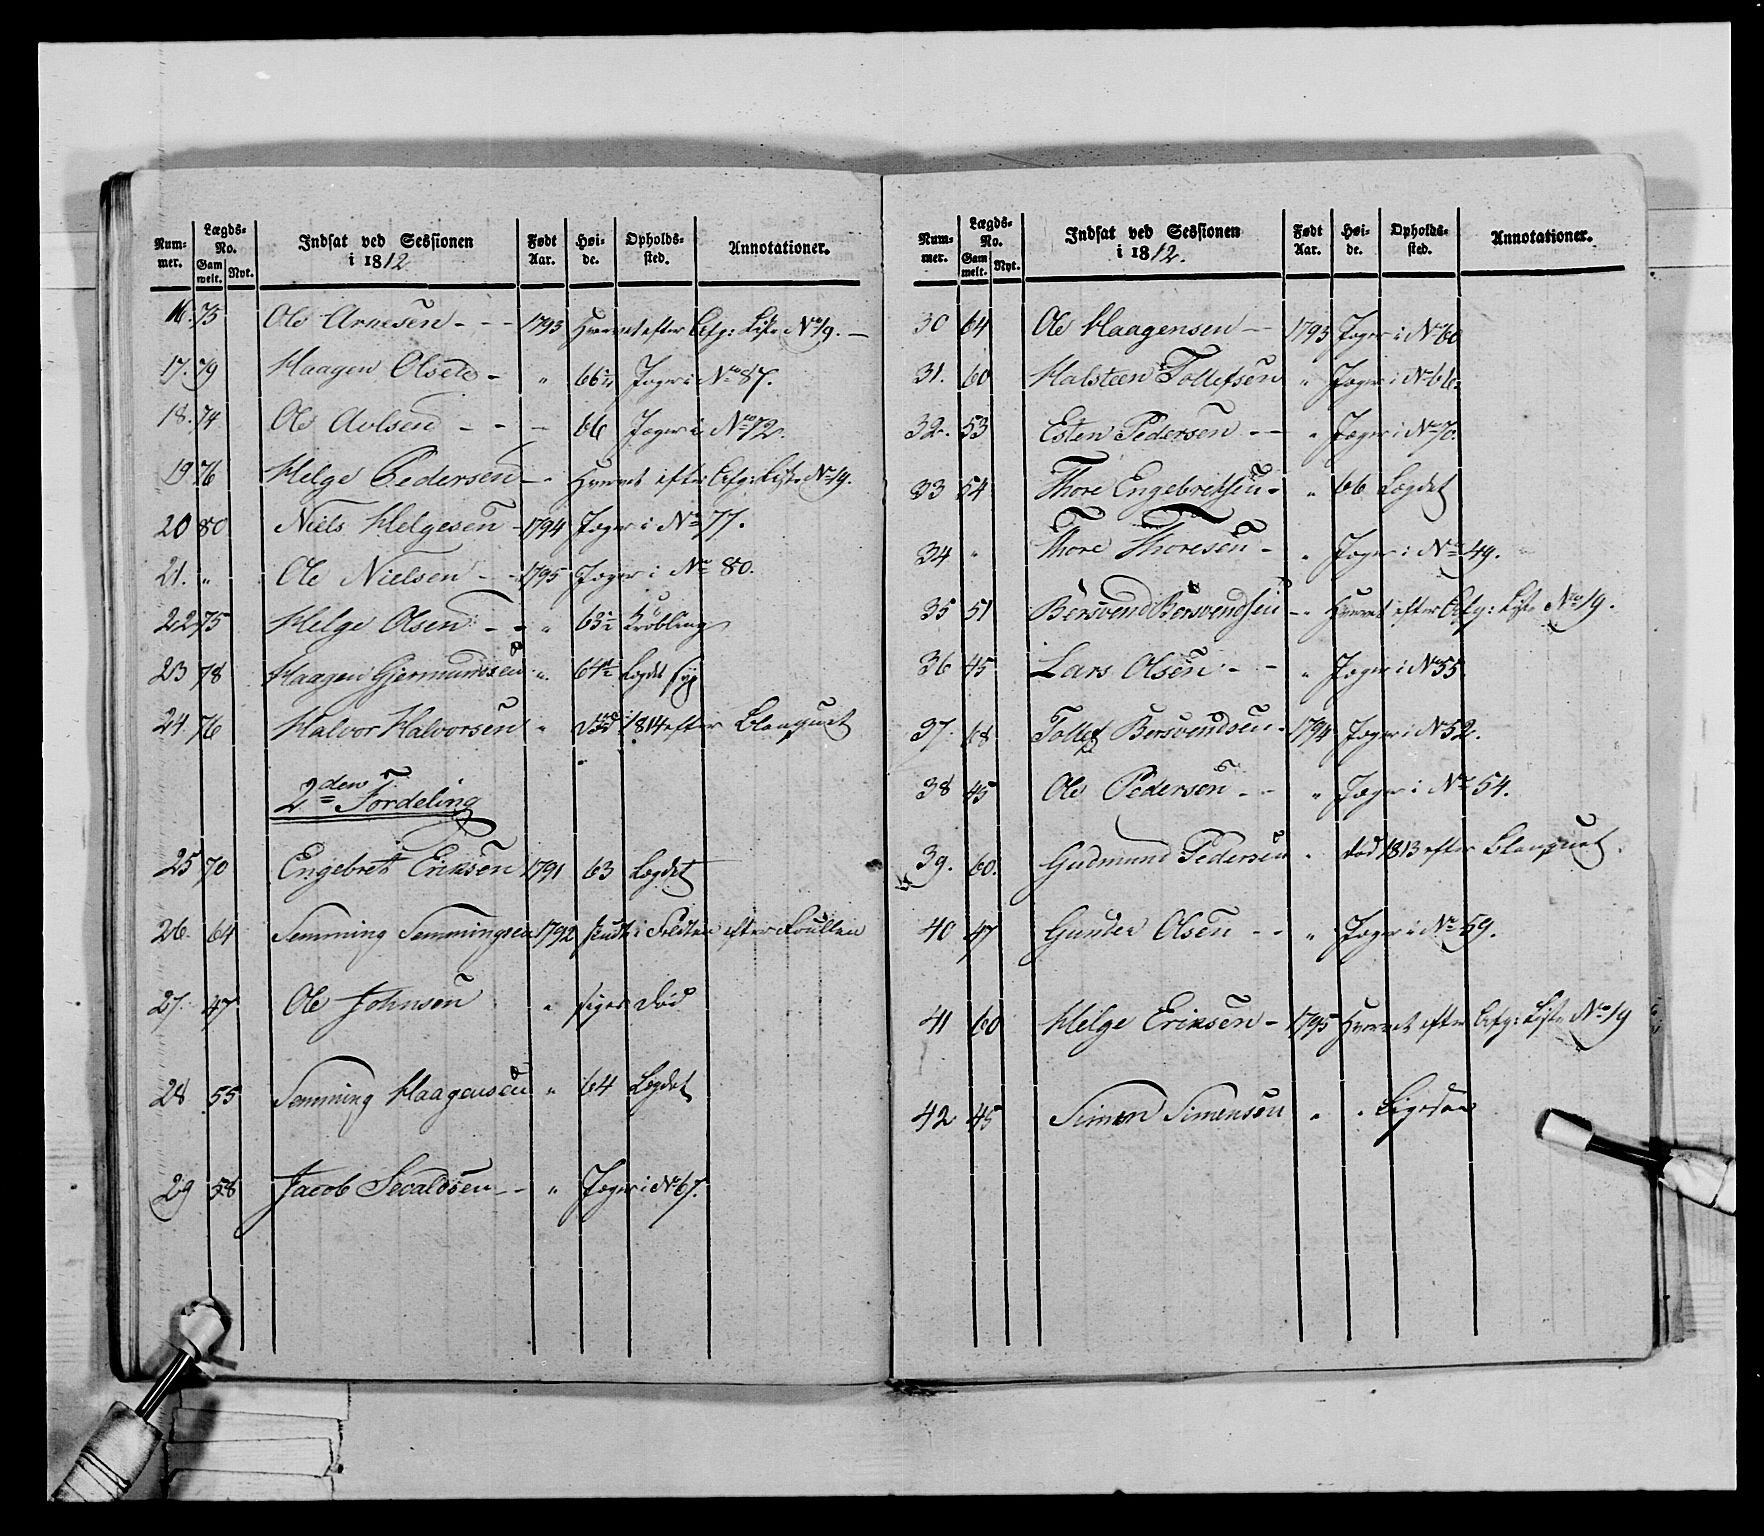 Num- Lægds- Indsat ved Sessionen Født Høi- Opholds- Annotationer.
mer. No. i 1812 Aar. de. sted.
Gam melt. Nyt.
16. 73 Ole Arnesen - - - 1793 Hvervet efter Afg: Liste No 19. -
17. 79 Haagen Olsen - " 66½ Jæger i No 87.
18. 74 Ole Avlsen - - - 66 Jæger i No 72.
19 76 Helge Pedersen - " Hvervet efter Afg: Liste No 19.
20 80 Niels Helgesen - 1794 Jæger i No 77.
21. " Ole Nielsen - - 1795 Jæger i No 80.
22 75 Helge Olsen - - " 63½ Krøbling
23 78 Haagen Gjermundsen " 64½ Lægdet syg
24. 76 Halvor Halvorsen " død 1814 efter Blanquet
2den Fordeling
25 70 Engebret Eriksen 1791 63 Lægdet
26. 64 Semming Semmingsen 1792 efter Roullen
27. 47 Ole Johnsen " siges død
28 55 Semming Haagensen " 64 Lægdet
29 58 Jacob Sevaldsen - - " Jæger i No 67.
Num- Lægds- Indsat ved Sessionen Født Høi- Opholds- Annotationer.
mer. No. i 1812. Aar. de. sted.
Gam melt. Nyt.
30 64 Ole Haagensen - - 1793 Jæger i No 60
31. 60 Halsteen Tollefsen " Jæger i No 66
32. 53 Esten Pedersen - - " Jæger i No 70.
33 54 Thore Engebretsen - " 66 Lægdet
34 " Thore Thoresen - " Jæger i No 49.
35 51 Bersvend Bersvendsen - " Hvervet efter Afg: Liste No 19.
36 45 Lars Olsen - - " Jæger i No 55
37. 68 Tollef Bersvendsen - 1794 Jæger i No 52.
38 45 Ole Pedersen - - " Jæger i No 54.
39. 60. Gudmund Pedersen " død 1813 efter Blanquet.
40 47 Gunder Olsen - - " Jæger i No 59.
41 60 Helge Eriksen - 1795 Hvervet efter Afg: Liste No 19
42 45 Simon Simensen " " Ligesaa